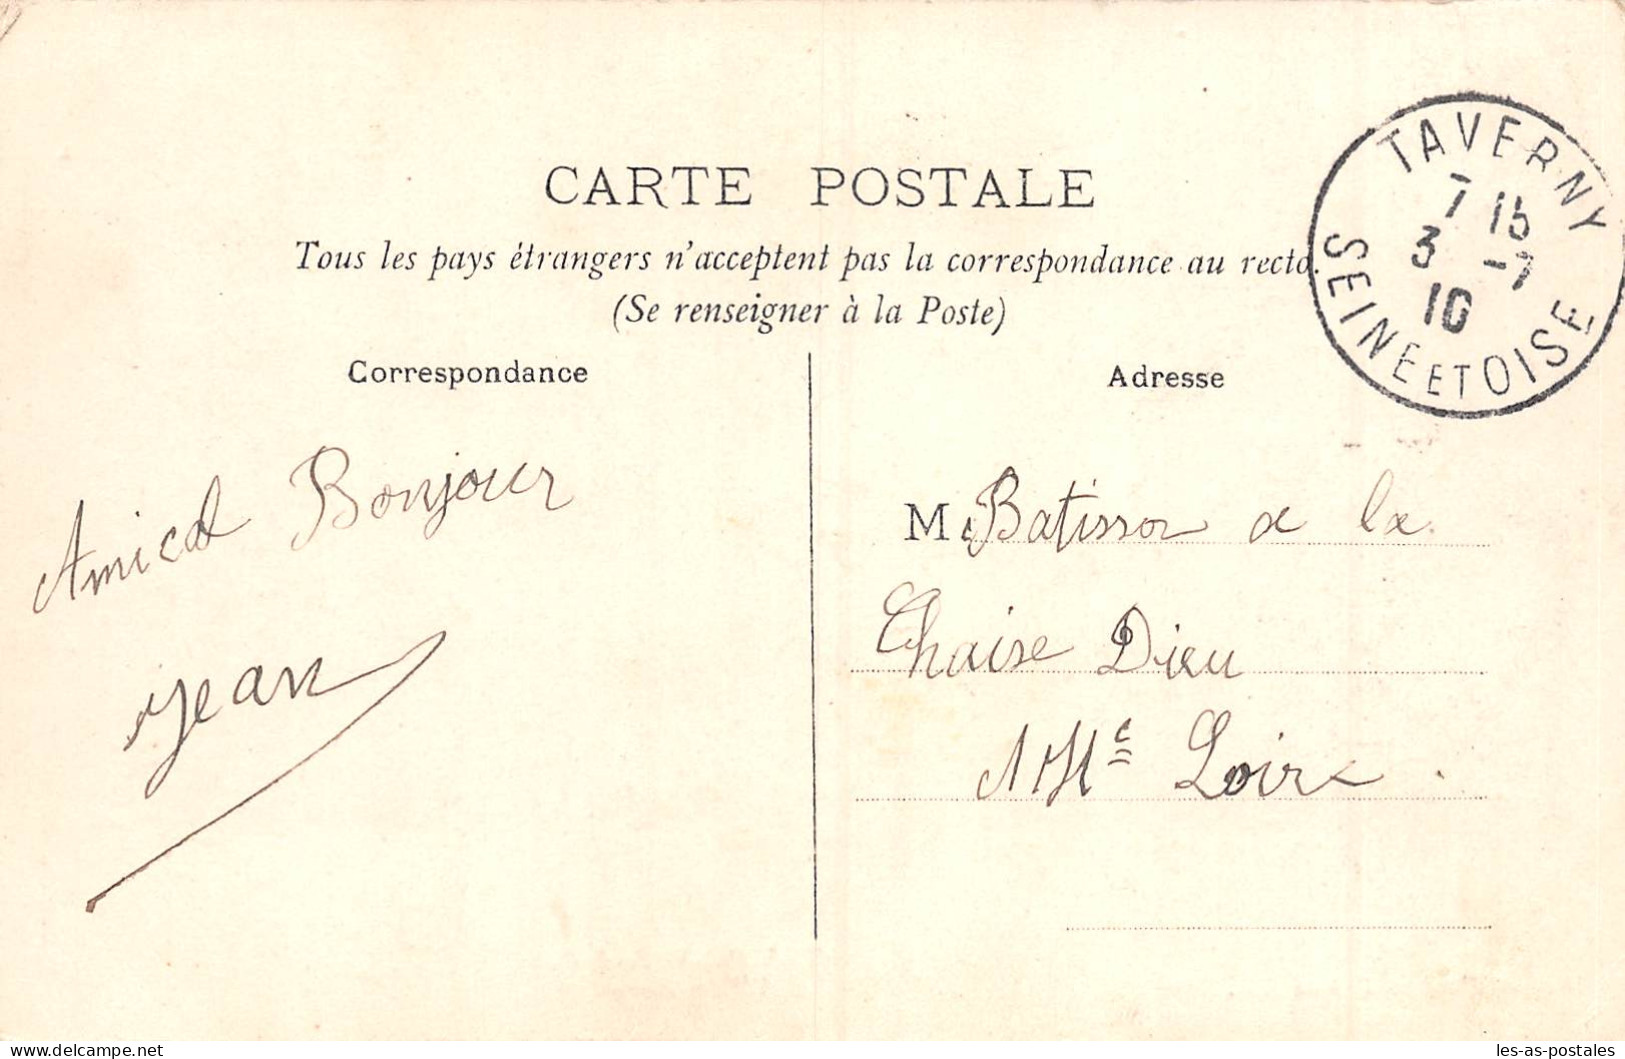 CARTE POSTALE
Tous les pays étrangers n'acceptent pas la correspondance au recto.
(Se renseigner à la Poste)
TAVERNY
7 15
3 -7
10
SEINE ET OISE
Correspondance
Adresse
Amical Bonjour
Jean
M. Batisson a la
Chaise Dieu
Hte Loire.
delcampe.net
les-as-postales